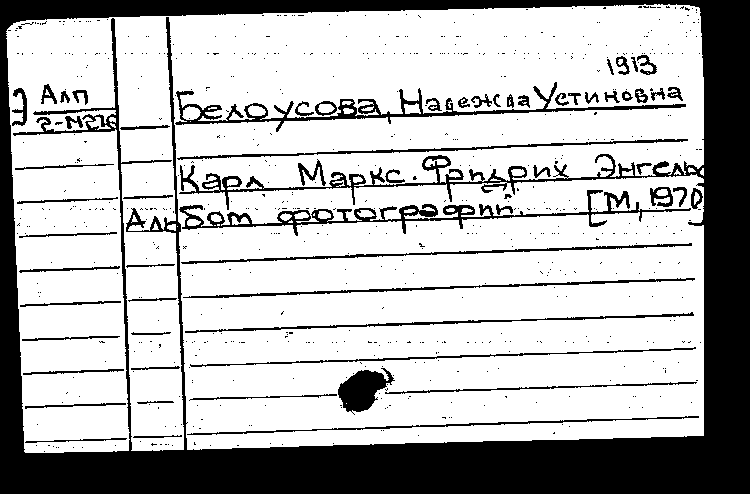 1913
Э Алп
2-М276
Белоусова, Надежда Устиновна
Карл Маркс. Фридрих Энгельс
Альбом фотографий. [М, 1970]